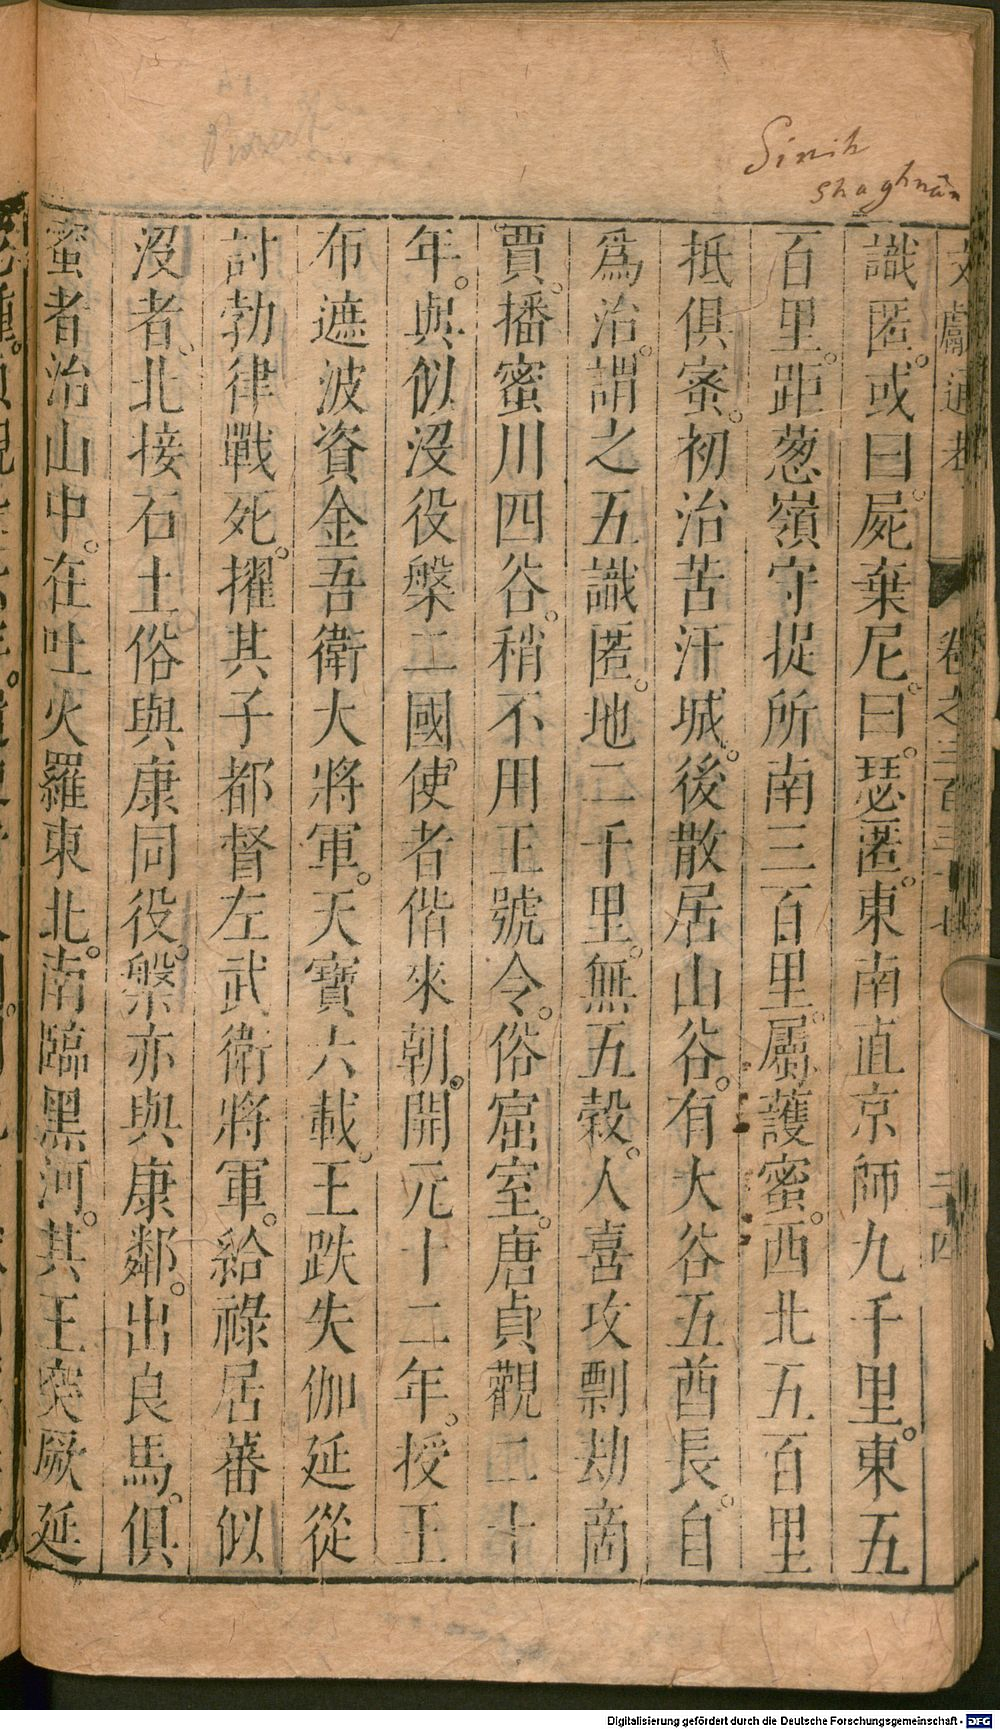 Sinih
shaghnân
文獻通考 卷之三百三十七 三四
識匿。或曰屍棄尼。曰瑟匿。東南直京師九千里。東五
百里。距葱嶺守捉所南三百里。屬護蜜。西北五百里
抵俱蜜。初治苦汗城。後散居山谷。有大谷五酋長。自
爲治。謂之五識匿。地二千里。無五穀。人喜攻剽劫商
賈。播蜜川四谷。稍不用王號令。俗窟室。唐貞觀二十
年。與似沒役槃二國使。者偕來朝。開元十二年。授王
布遮波資金吾衛大將軍。天寶六載。王跌失伽延從
討勃律戰死。擢其子都督左武衛將軍。給祿居蕃似
沒者、北接石土。俗與康同役。槃亦與康鄰。出良馬。俱
蜜者治山中。在吐火羅東北。南臨黑河。其王突厥延
Digitalisierung gefördert durch die Deutsche Forschungsgemeinschaft - DFG